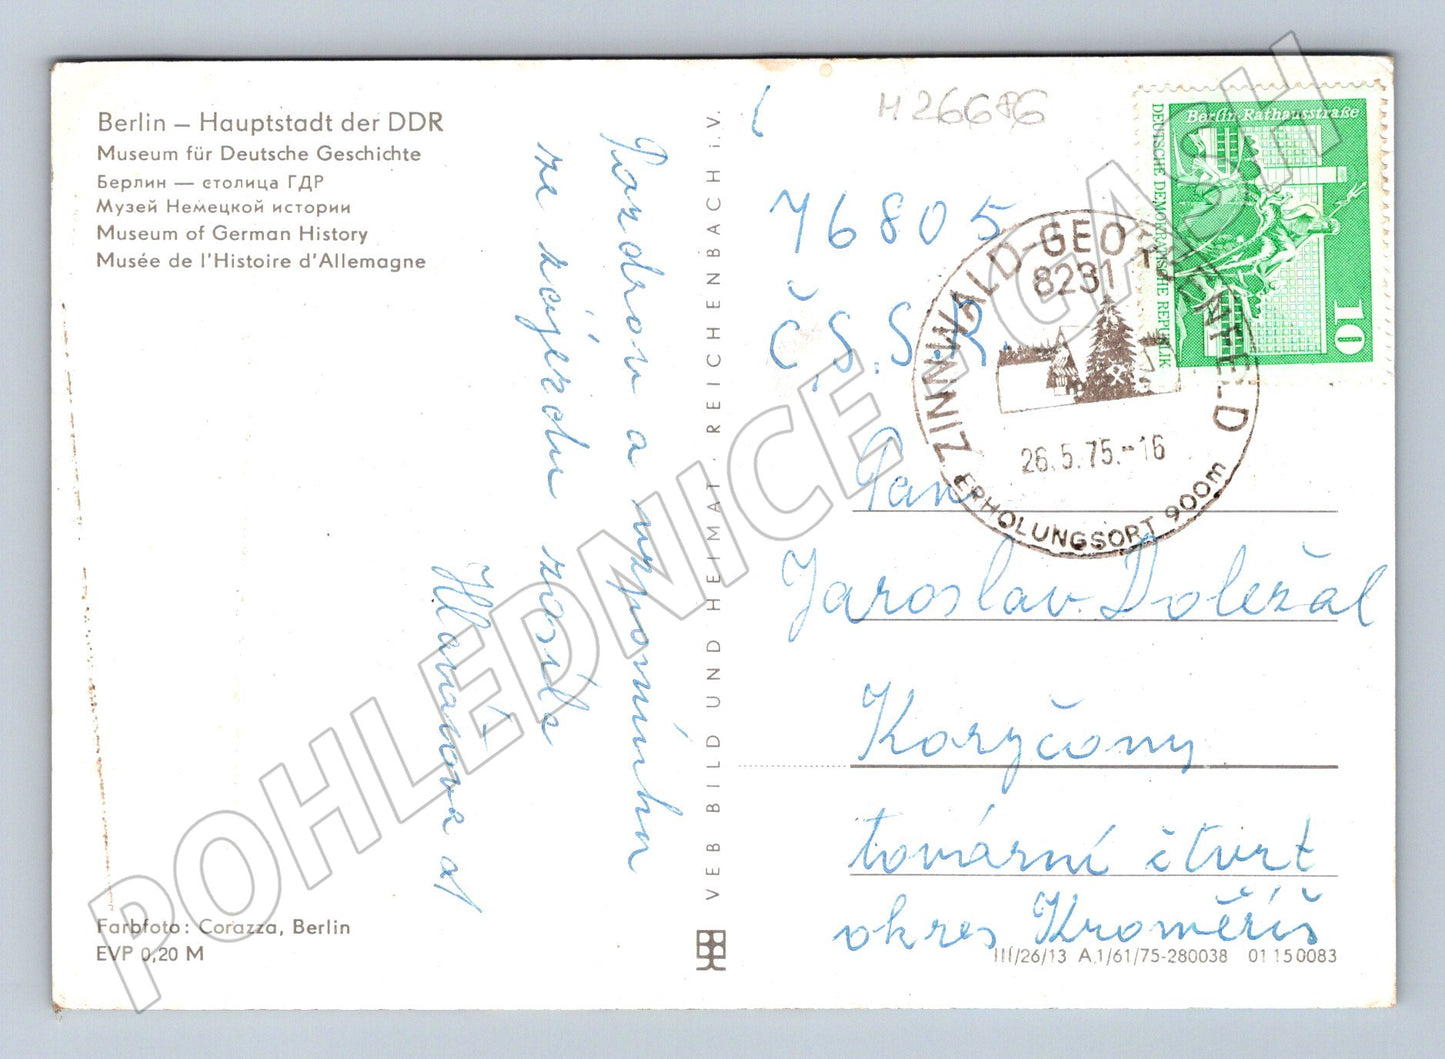 Berlin – Hauptstadt der DDR
Museum für Deutsche Geschichte
Берлин — столица ГДР
Музей Немецкой истории
Museum of German History
Musée de l'Histoire d'Allemagne
Pozdrav a vzpomínku
ze zájezdu zasílá
Hlavicova
Farbfoto: Corazza, Berlin
EVP 0,20 M
VEB BILD UND HEIMAT REICHENBACH i.V.
H 26686
Berlin, Rathausstraße
DEUTSCHE DEMOKRATISCHE REPUBLIK
10
ZINNWALD-GEORGENFELD
8231
26.5.75.-16
ERHOLUNGSORT 900m
76805
Č.S.S.R
Pan
Jaroslav Doležal
Koryčany
tovární čtvrt
okres Kroměříš
III/26/13 A 1/61/75-280038 01 15 0083
POHLEDNICE - AGASH